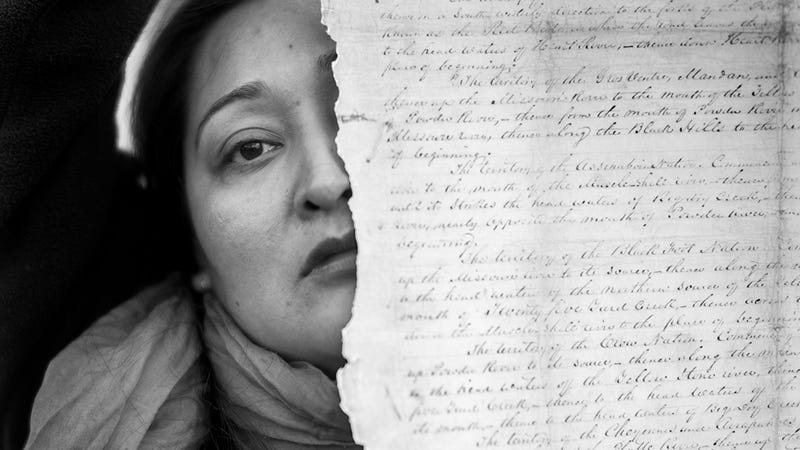 thence in a south westerly direction to the forks of the
known as the Red where the road leaves the
to the head waters of Heart River, – thence down Heart
place of beginning.
The territory of the Gros Ventre, Mandans, and
thence up the Missouri River to the mouth of the Yellow
Powder River, – thence from the mouth of Powder River
Missouri river, thence along the Black Hills to the
of beginning.
The territory of the Assinaboin Nation.
river to the mouth of the Muscle-shell river, – thence from
until it strikes the head waters of Big dry Creek, –
river, nearly opposite the mouth of Powder river,
beginning.
The territory of the Black Foot Nation.
up the Missouri river to its source, – thence along the
to the head waters of the Northern source of the
mouth of Twenty five Yard Creek, – thence across
down the Muscle shell river to the place of beginning
The territory of the Crow Nation. Commencing
up Powder River to its source, – thence along the
to the head waters of the Yellow Stone river, thence
five Yard Creek, – thence to the head waters of the
its mouth, – thence to the head waters of Big Dry Creek
The territory of the Cheyennes and Arrapahoes
Platte River, – thence up the